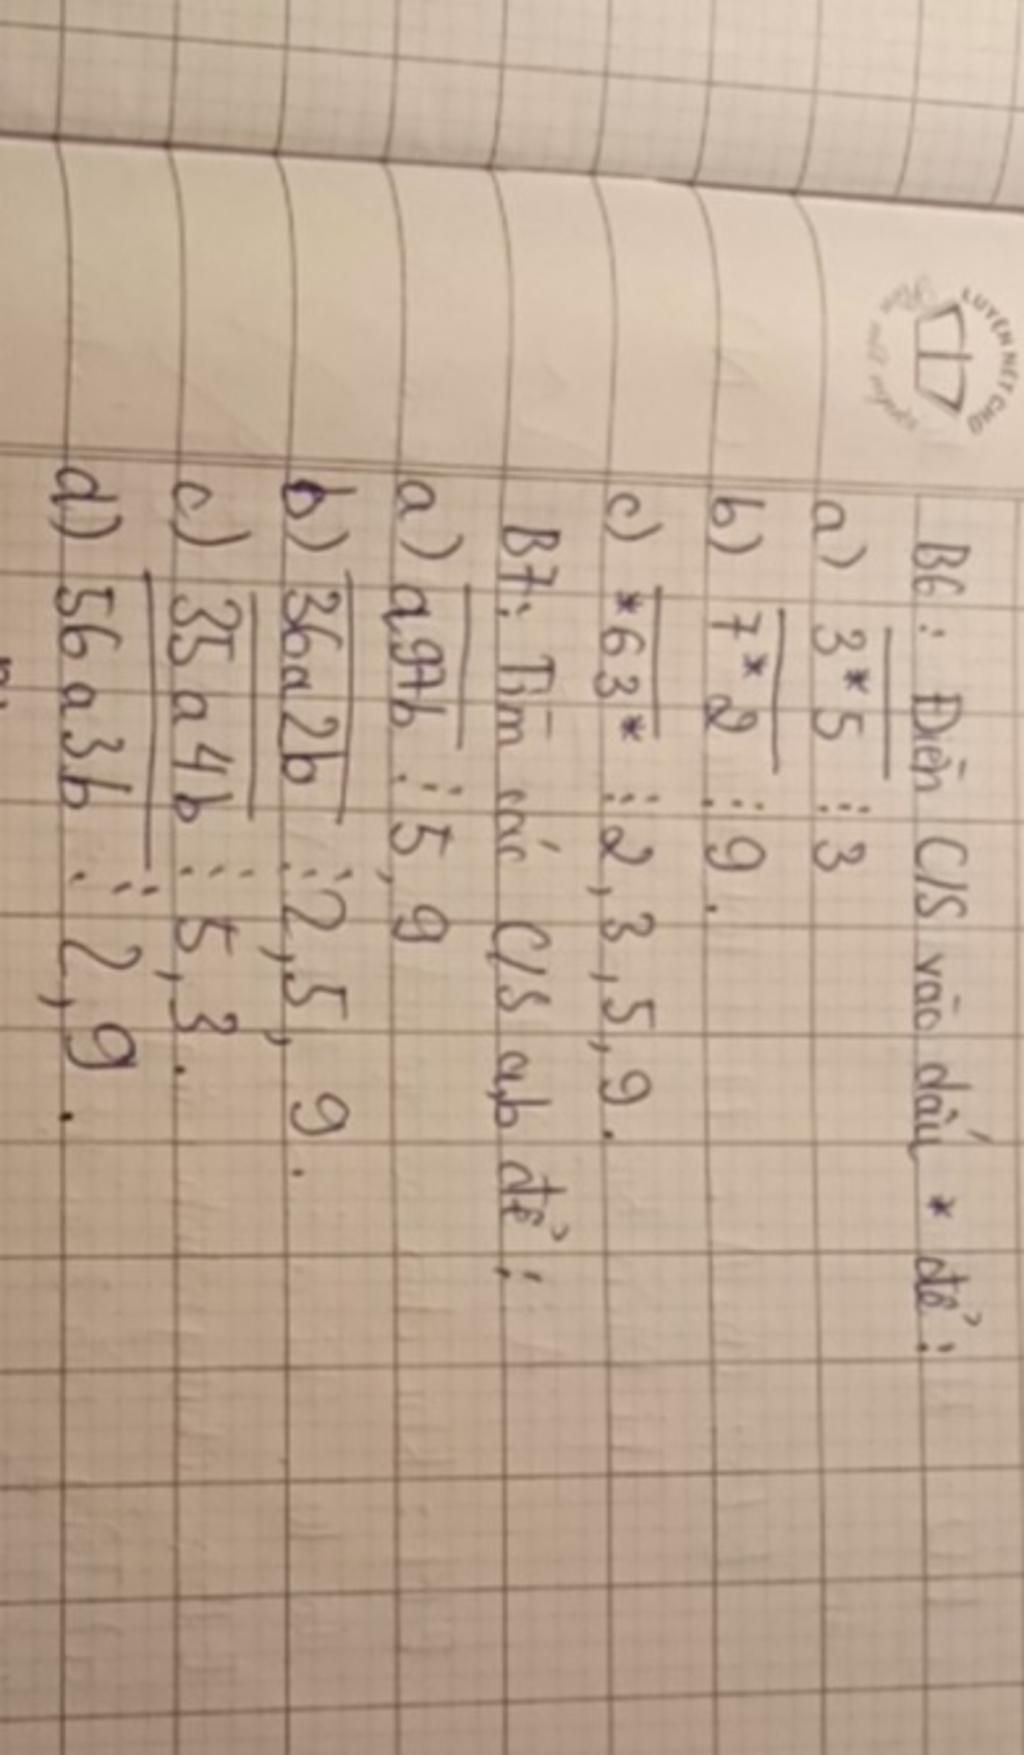 LUYỆN NÉT CHỮ
B6: Điền C/S vào dấu * để:
a) 3*5 ⋮ 3
b) 7*2 ⋮ 9.
c) *63* ⋮ 2, 3, 5, 9.
B7: Tìm các C/S a,b để:
a) a97b ⋮ 5, 9
b) 36a2b ⋮ 2, 5, 9.
c) 35a4b ⋮ 5, 3.
d) 56a3b ⋮ 2, 9.